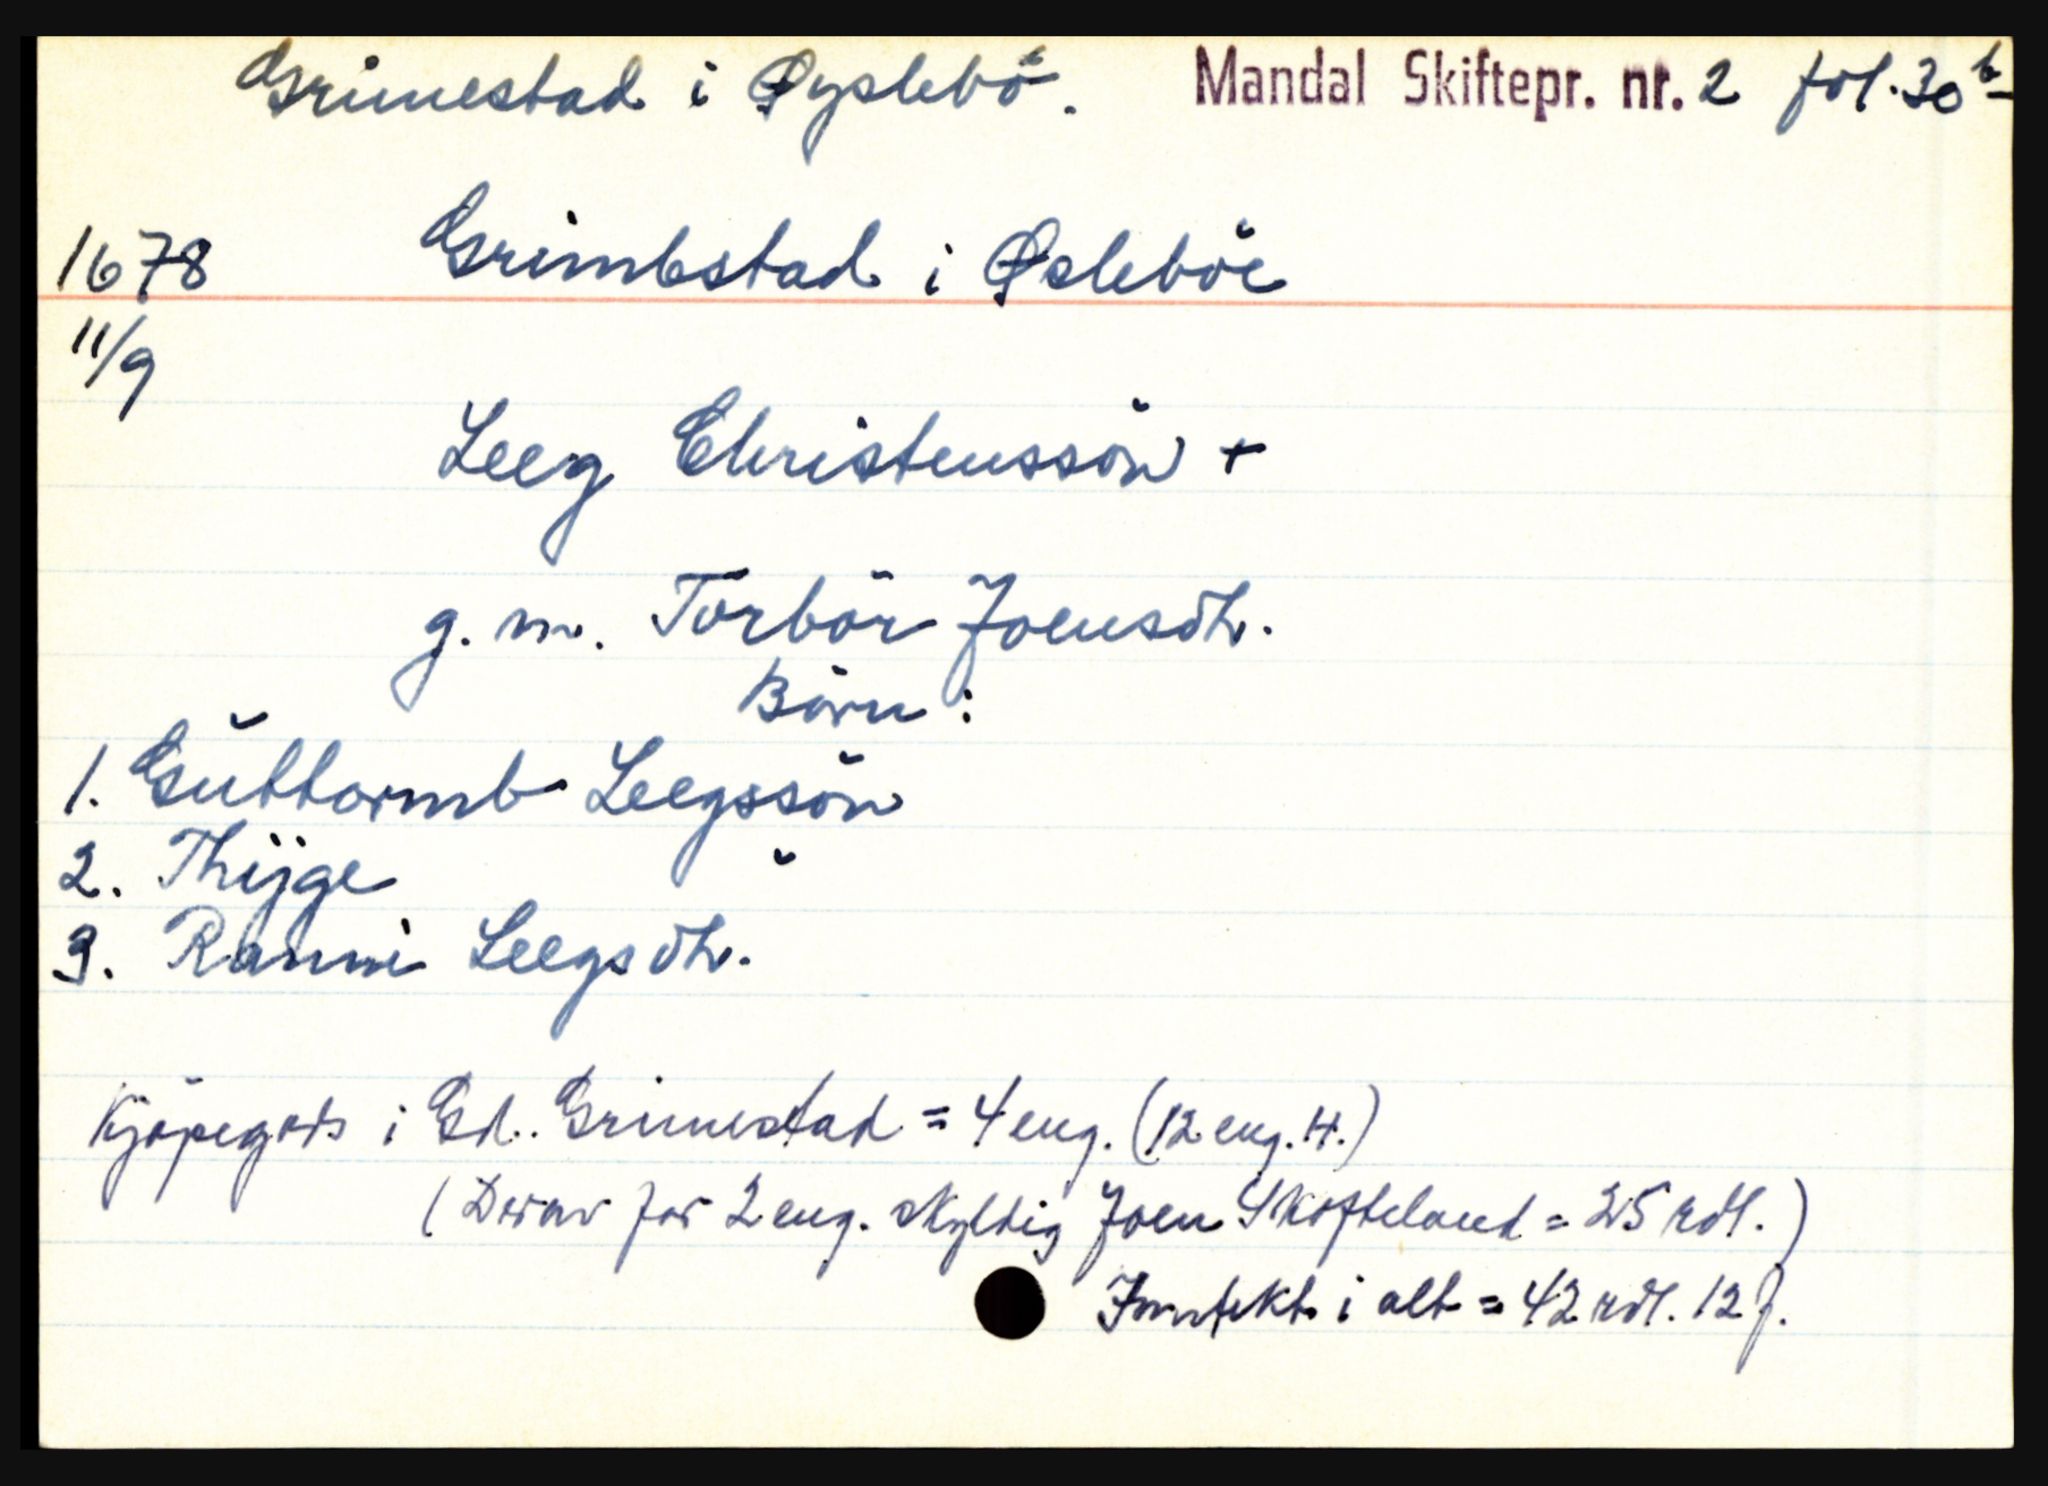 Grimestad i Øyslebö. Mandal Skiftepr. nr. 2 fol. 30b
1678 Grimbstad i Øslebőe
11/9
Leeg Christenssön +
g. m. Törbör Joensdtr.
Börn:
1. Guttormb Leegssön
2. Thijge "
3. Ranni Leegsdtr.
Kjöpegods i Gd. Grimestad = 4 eng. (12 eng. H.)
(Derav for 2 eng. skyldig Joen Skofteland = 25 rdl.)
Inntekt i alt = 42 rdl. 12 f.